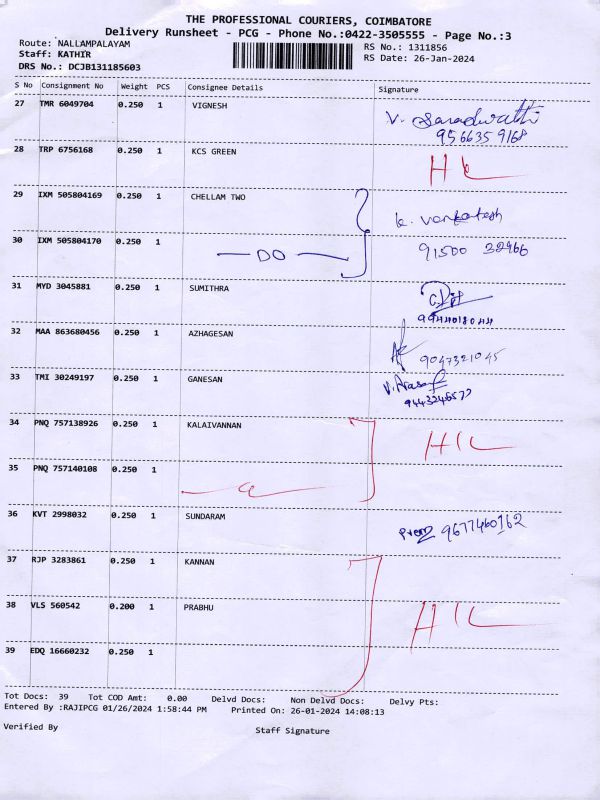 THE PROFESSIONAL COURIERS, COIMBATORE
Delivery Runsheet - PCG - Phone No.:0422-3505555 - Page No.:3
Route: NALLAMPALAYAM
Staff: KATHIR
DRS No.: DCJB131185603
RS No.: 1311856
RS Date: 26-Jan-2024
S No Consignment No Weight PCS Consignee Details Signature
27 TMR 6049704 0.250 1 VIGNESH
V. Saradwathi
956635 9168
28 TRP 6756168 0.250 1 KCS GREEN
29 IXM 505804169 0.250 1 CHELLAM TWO
k. Venkatesh
30 IXM 505804170 0.250 1
DO
91500 32966
31 MYD 3045881 0.250 1 SUMITHRA
32 MAA 863680456 0.250 1 AZHAGESAN
9047321045
33 TMI 30249197 0.250 1 GANESAN
34 PNQ 757138926 0.250 1 KALAIVANNAN
35 PNQ 757140108 0.250 1
36 KVT 2998032 0.250 1 SUNDARAM
Prem 9677460162
37 RJP 3283861 0.250 1 KANNAN
38 VLS 560542 0.200 1 PRABHU
39 EDQ 16660232 0.250 1
Tot Docs: 39 Tot COD Amt: 0.00 Delvd Docs: Non Delvd Docs: Delvy Pts:
Entered By :RAJIPCG 01/26/2024 1:58:44 PM Printed On: 26-01-2024 14:08:13
Verified By Staff Signature